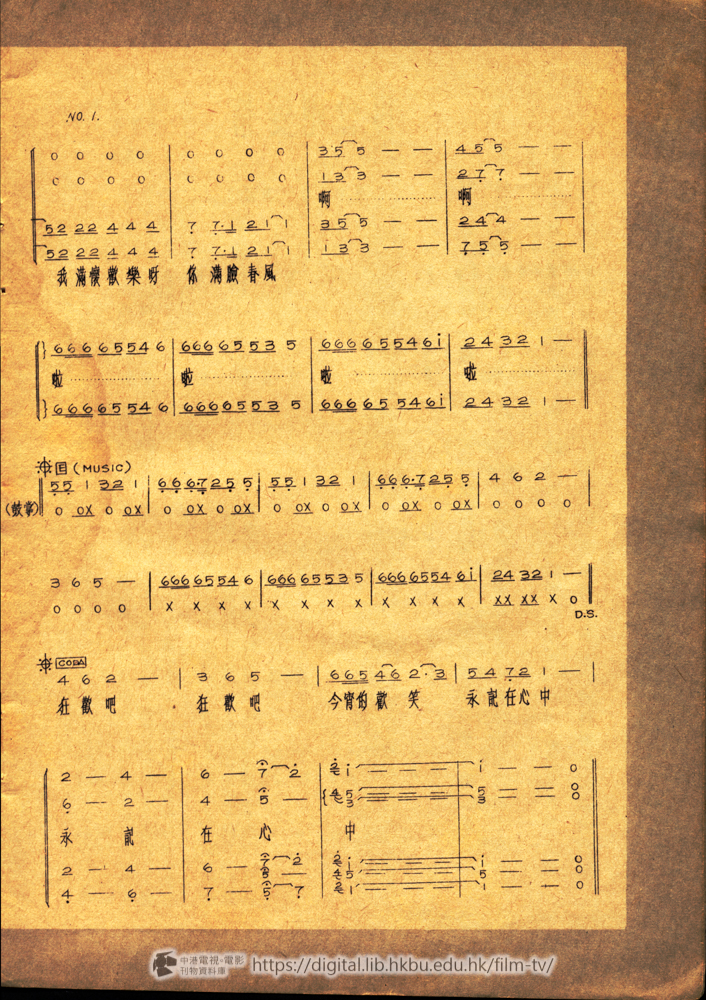 NO. 1.
0 0 0 0 | 0 0 0 0 | 3·5 5 — — | 4 5 5 — —
0 0 0 0 | 0 0 0 0 | 1 3 3 — — | 2 7 7 — —
啊 啊
52 22 4 4 4 | 7 7·1 2 1 1 | 3 5 5 — — | 2 4 4 — —
52 22 4 4 4 | 7 7·1 2 1 1 | 1 3 3 — — | 7 5 5 — —
我 滿懷 歡 樂 呀 你 滿 臉 春 風
666 65 54 6 | 666 65 53 5 | 666 65 54 6i | 24 32 1 —
啦 啦 啦 啦
666 65 54 6 | 666 65 53 5 | 666 65 54 6i | 24 32 1 —
(MUSIC)
55 1 32 1 | 66 6·7 25 5 | 55 1 32 1 | 66 6·7 25 5 | 4 6 2 —
(鼓掌) 0 0X 0 0X | 0 0X 0 0X | 0 0X 0 0X | 0 0X 0 0X | 0 0 0 0
3 6 5 — | 666 65 54 6 | 666 65 53 5 | 666 65 54 6i | 24 32 1 —
0 0 0 0 | X X X X | X X X X | X X X X | XX XX X 0
D.S.
CODA
4 6 2 — | 3 6 5 — | 665 46 2·3 | 54 72 1 —
狂 歡 吧 狂 歡 吧 今宵的 歡 笑 永 記 在心 中
2 — 4 — | 6 — 7 2 | 2 i — — — | i — — 0
6 — 2 — | 4 — 5 — | 5 3 — — — | 5 3 — — 0 0
永 記 在 心 中
2 — 4 — | 6 — 7 2 | i — — — | i — — 0
4 — 6 — | 7 — 5 7 | 1 — — — | 1 — — 0
中港電視·電影
刊物資料庫
https://digital.lib.hkbu.edu.hk/film-tv/